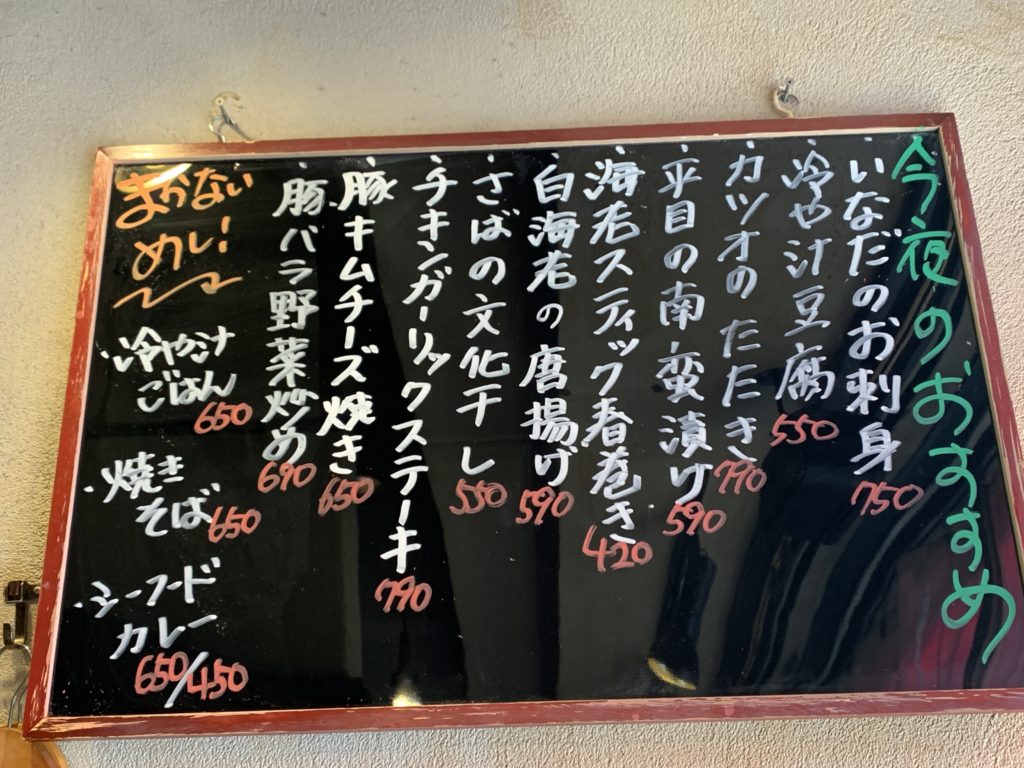 今夜のおすすめ
・いなだのお刺身 750
・冷や汁豆腐 550
・カツオのたたき 790
・平目の南蛮漬け 590
・海老スティック春巻き 420
・白海老の唐揚げ 590
・さばの文化干し 550
・チキンガーリックステーキ 790
・豚キムチーズ焼き 650
・豚バラ野菜炒め 690
まかない
めし!
・冷やかけ
ごはん 650
・焼き
そば 650
・シーフード
カレー
650/450